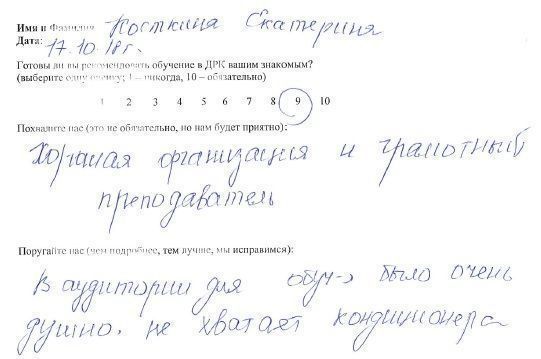 Имя и Фамилия Косткина Екатерина
Дата: 17.10.18г.
Готовы ли вы рекомендовать обучение в ДРК вашим знакомым?
(выберите одну оценку; 1 – никогда, 10 – обязательно)
1 2 3 4 5 6 7 8 9 10
Похвалите нас (это не обязательно, но нам будет приятно):
Хорошая организация и грамотный
преподаватель
Поругайте нас (чем подробнее, тем лучше, мы исправимся):
В аудитории для обуч-я было очень
душно. не хватает кондиционера